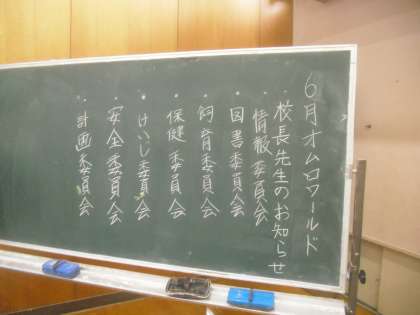 6月オムロワールド
・校長先生のお知らせ
・情報委員会
・図書委員会
・飼育委員会
・保健委員会
・けいじ委員会
・安全委員会
・計画委員会